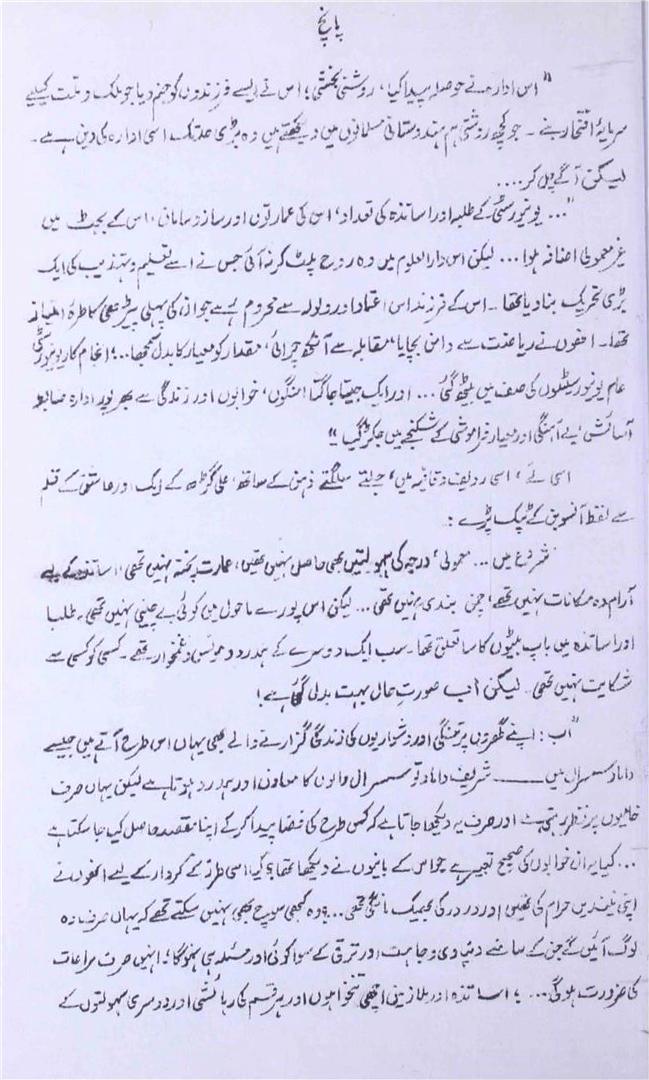 پانچ
"اس ادارے نے حوصلہ پیدا کیا، روشنی بخشی؛ اس نے ایسے فرزندوں کو جنم دیا جو ملک و ملت کیلیے
سرمایۂ افتخار بنے۔ جو کچھ روشنی ہم ہندوستانی مسلمانوں میں دیکھتے ہیں وہ بڑی حد تک اسی ادارہ کی دین ہے۔
لیکن آگے چل کر....
"... یونیورسٹی کے طلبہ اور اساتذہ کی تعداد، اس کی عمارتوں اور ساز و سامان، اس کے بجٹ میں
غیر معمولی اضافہ ہوا... لیکن اس دارالعلوم میں وہ روح پلٹ کر نہ آئی جس نے اسے تعلیم و تہذیب کی ایک
بڑی تحریک بنا دیا تھا۔ اس کے فرزند اس اعتماد اور ولولہ سے محروم رہے جو ان کی پہلی پیڑھی کا طرۂ امتیاز
تھا۔ انھوں نے ریاضت سے دامن بچایا، مقابلہ سے آنکھ چرائی، مقدار کو معیار کا بدل سمجھا...؛ انجام کار یونیورسٹی
عام یونیورسٹیوں کی صف میں بیٹھ گئی... اور ایک جیتا جاگتا امنگوں، خوابوں اور زندگی سے بھرپور ادارہ ضابطہ
آسائش، بے آہنگی اور معیار فراموشی کے شکنجے میں جکڑ گیا"
اسی لے، اسی ردیف و قافیہ میں، جلتے سلگتے ذہن کے ساتھ، علی گڑھ کے ایک اور عاشق کے قلم
سے لفظ آنسو بن کے ٹپک پڑے:
شروع میں... معمولی درجہ کی سہولتیں بھی حاصل نہیں تھیں، عمارت پختہ نہیں تھی، اساتذہ کے لیے
آرام دہ مکانات نہیں تھے، چمن بندی نہیں تھی... لیکن اس پورے ماحول میں کوئی بے چینی نہیں تھی۔ طلبا
اور اساتذہ میں باپ بیٹوں کا سا تعلق تھا۔ سب ایک دوسرے کے ہمدرد و مونس و غمخوار تھے۔ کسی کو کسی سے
شکایت نہیں تھی۔ لیکن اب صورتِ حال بہت بدل گئی ہے!
"اب: اپنے گھروں پر تنگی اور دشواریوں کی زندگی گزارنے والے بھی یہاں اس طرح آتے ہیں جیسے
داماد سسرال میں ــــــ شریف داماد تو سسرال والوں کا معاون اور ہمدرد ہوتا ہے لیکن یہاں صرف
خامیوں پر نظر رہتی ہے اور صرف یہ دیکھا جاتا ہے کہ کس طرح کی فضا پیدا کر کے اپنا مقصد حاصل کیا جا سکتا ہے
... کیا یہ ان خوابوں کی صحیح تعبیر ہے جو اس کے بانیوں نے دیکھا تھا؟ کیا اسی طرز کے کردار کے لیے انھوں نے
اپنی نیندیں حرام کی تھیں اور در در کی بھیک مانگی تھی...؟ وہ کبھی سوچ بھی نہیں سکتے تھے کہ یہاں صرف وہ
لوگ آئیں گے جن کے سامنے دنیاوی وجاہت اور ترقی کے سوا کوئی اور مسئلہ ہی نہ ہوگا؛ انہیں صرف مراعات
کی ضرورت ہوگی...؛ اساتذہ اور ملازمین اچھی تنخواہوں اور ہر قسم کی رہائشی اور دوسری سہولتوں کے